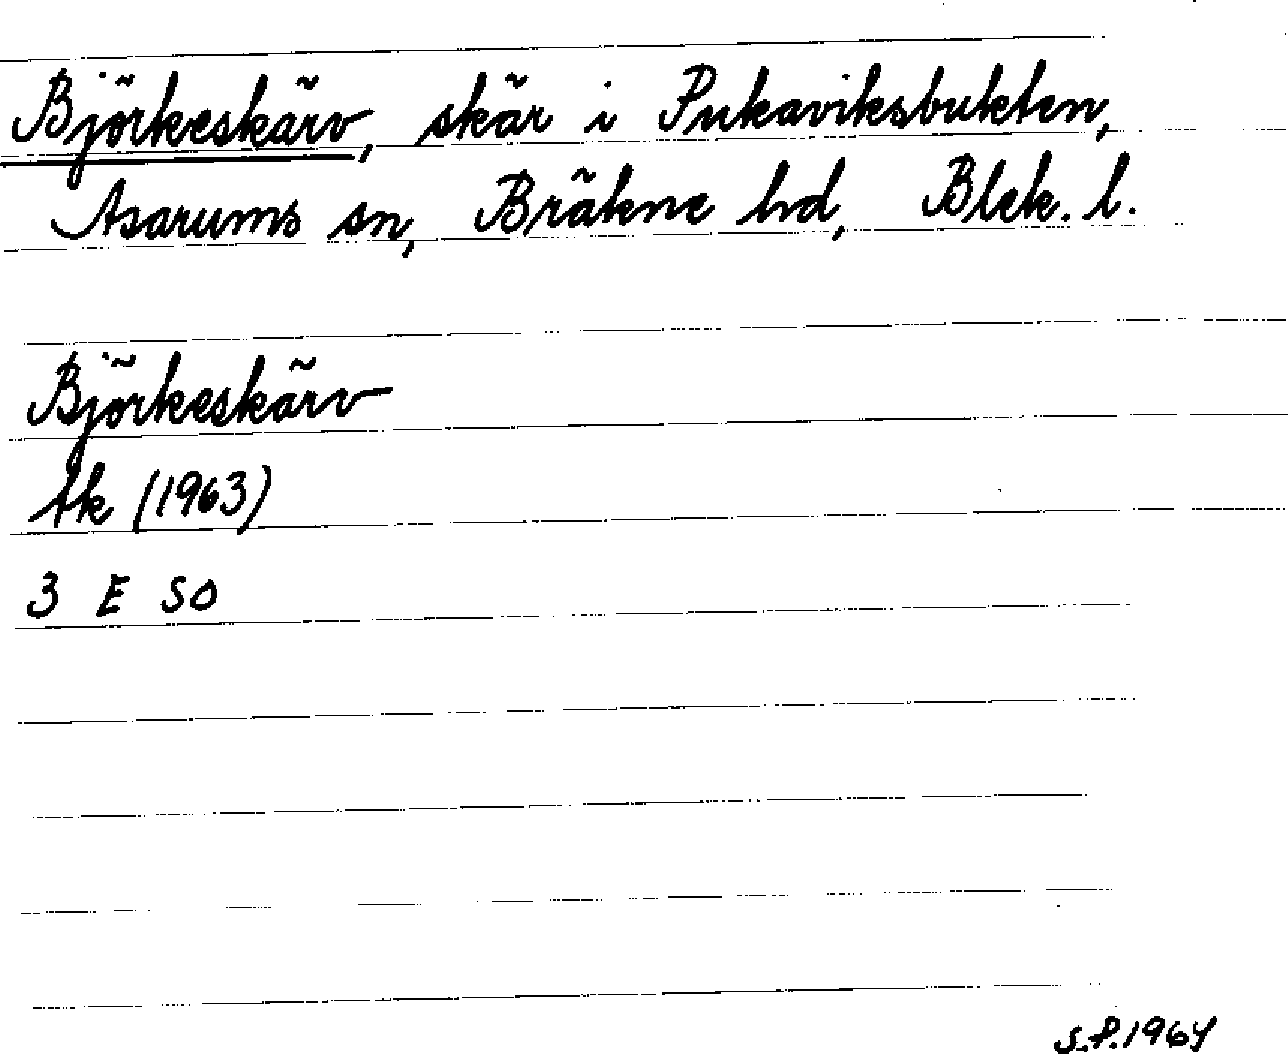 Björkeskärv, skär i Pukaviksbukten,
Asarums sn, Bräkne hd, Blek. l.
Björkeskärv
tk (1963)
3 E SO
S.P. 1964